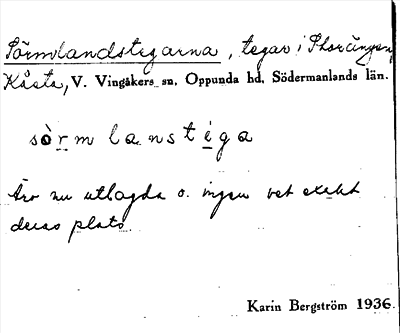 Sörmlandstegarna, tegar i Storängen,
Kåsta, V. Vingåkers sn, Oppunda hd, Södermanlands län.
sòrmlanstiga
Äro nu utlagda o. ingen vet exakt
deras plats.
Karin Bergström 1936.